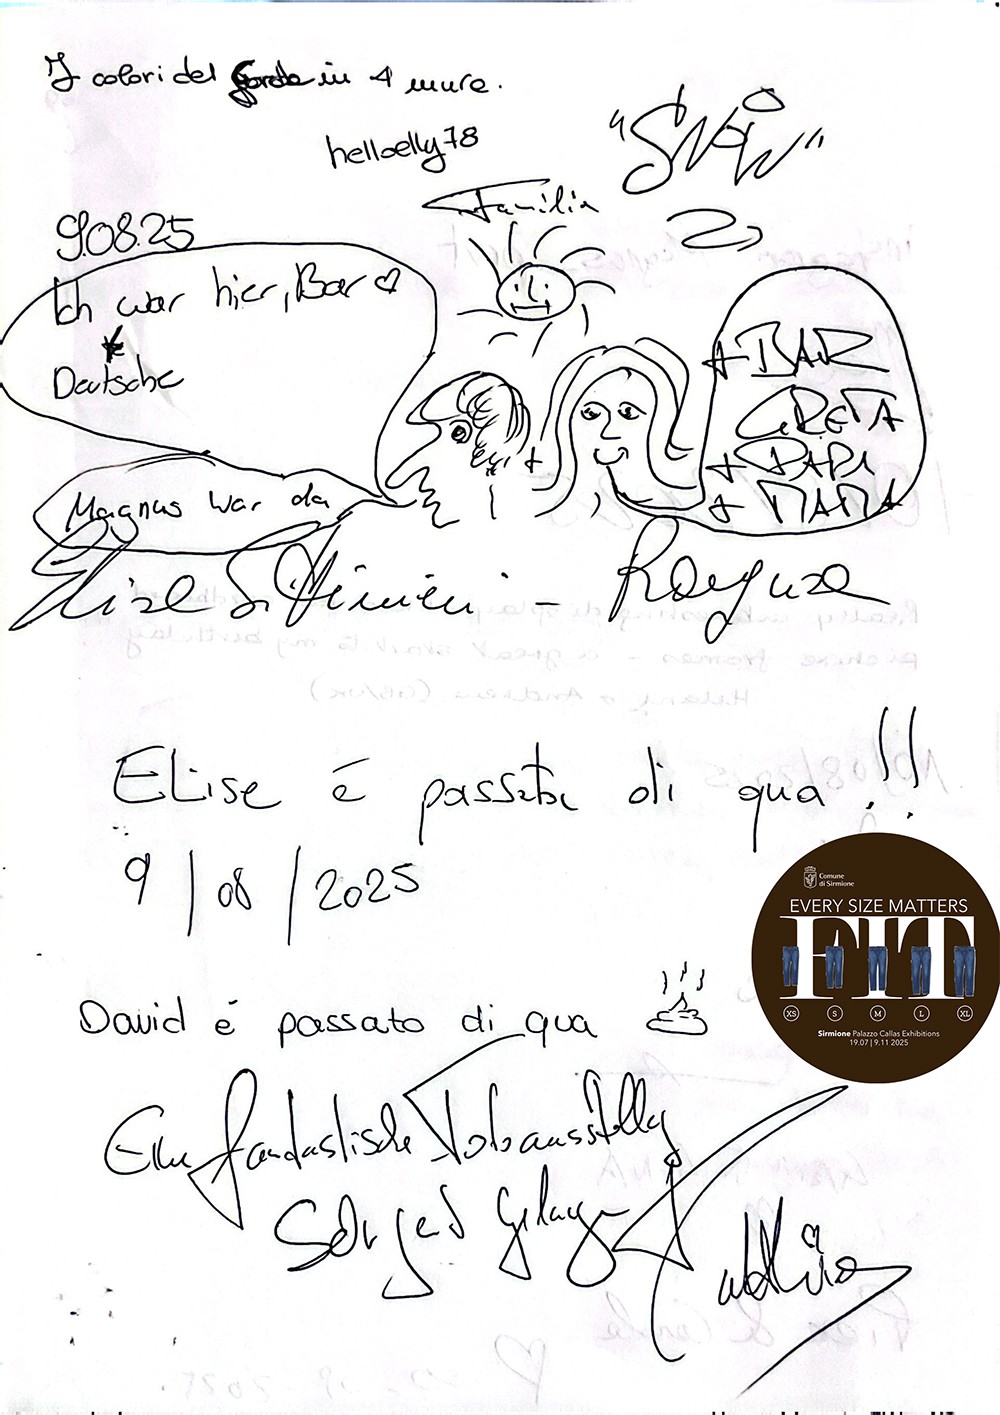 I colori del Garda in 4 mura.
helloelly78
"SNOW"
Familia
9.08.25
Ich war hier, Bar ♡
Deutsche
+ BAR
GRETA
+ PAPA
+ MAMA
Magnus war da
Elise - Raguse
ELise é passata di qua !!!
9/08/2025
Comune
di Sirmione
EVERY SIZE MATTERS
XS S M L XL
Sirmione Palazzo Callas Exhibitions
19.07 | 9.11 2025
David é passato di qua
Eine fantastische Fotoausstellg
Sehr gut gelungen